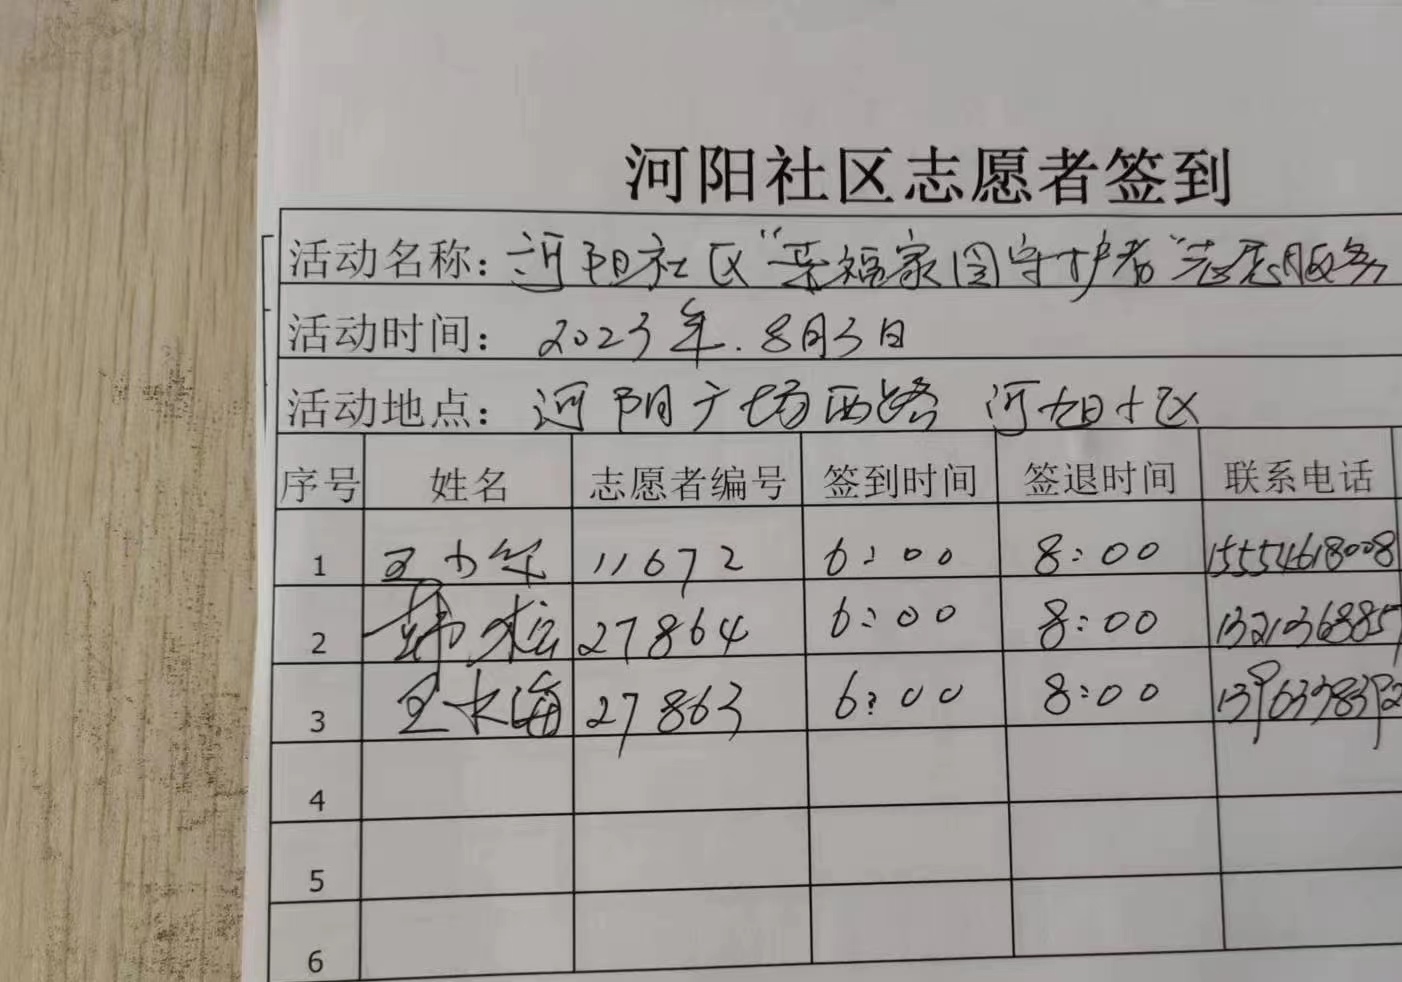 河阳社区志愿者签到
活动名称：河阳社区“幸福家园守护者”志愿服务
活动时间：2023年.8月3日
活动地点：河阳广场西路 河旭小区
序号 姓名 志愿者编号 签到时间 签退时间 联系电话
1 王 11672 6:00 8:00 15554618008
2 韩 27864 6:00 8:00
3 王大海 27863 6:00 8:00
4
5
6